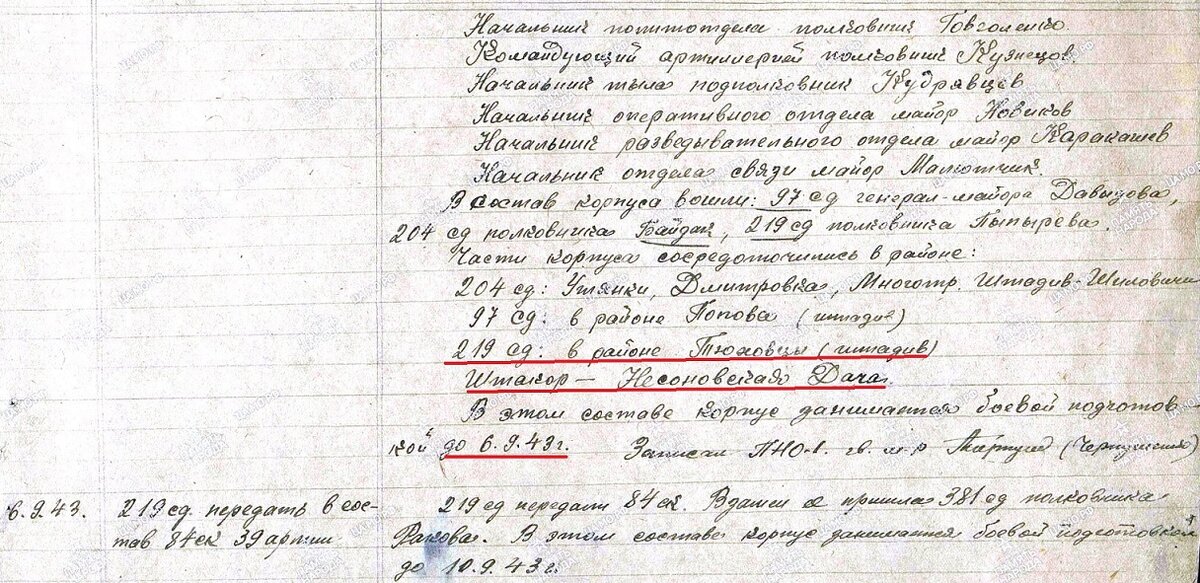 Начальник политотдела полковник Говголенко.
Командующий артиллерией полковник Кузнецов
Начальник тыла подполковник Кудрявцев
Начальник оперативного отдела майор Новиков
Начальник разведывательного отдела майор Каракашев
Начальник отдела связи майор Малютчик.
В состав корпуса вошли: 97 сд генерал-майора Давыдова,
204 сд полковника Байдак, 219 сд полковника Пыпырева.
Части корпуса сосредоточились в районе:
204 сд: Утянки, Дмитровка, Многотр. Штадив-Шиловичи
97 сд: в районе Попова (штадив)
219 сд: в районе Тюховцы (штадив)
Штакор — Несоновская Дача.
В этом составе корпус занимается боевой подготов
кой до 6.9.43г. Записал ПНО-1 гв. м-р
6.9.43. 219 сд. передать в сос-
тав 84ск 39 армии
219 сд передали 84ск. Взамен ее пришла 381 сд полковника
Ракова. В этом составе корпус занимается боевой подготовкой
до 10.9.43г.